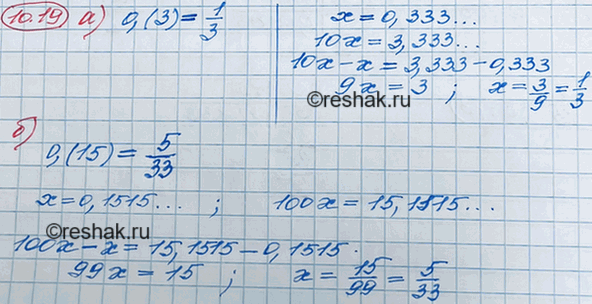 10.19 а) 0,(3) = 1/3
x = 0,333...
10x = 3,333...
10x - x = 3,333 - 0,333
9x = 3 ; x = 3/9 = 1/3
©reshak.ru
б)
0,(15) = 5/33
x = 0,1515... ; 100x = 15,1515...
©reshak.ru
100x - x = 15,1515 - 0,1515.
99x = 15 ; x = 15/99 = 5/33